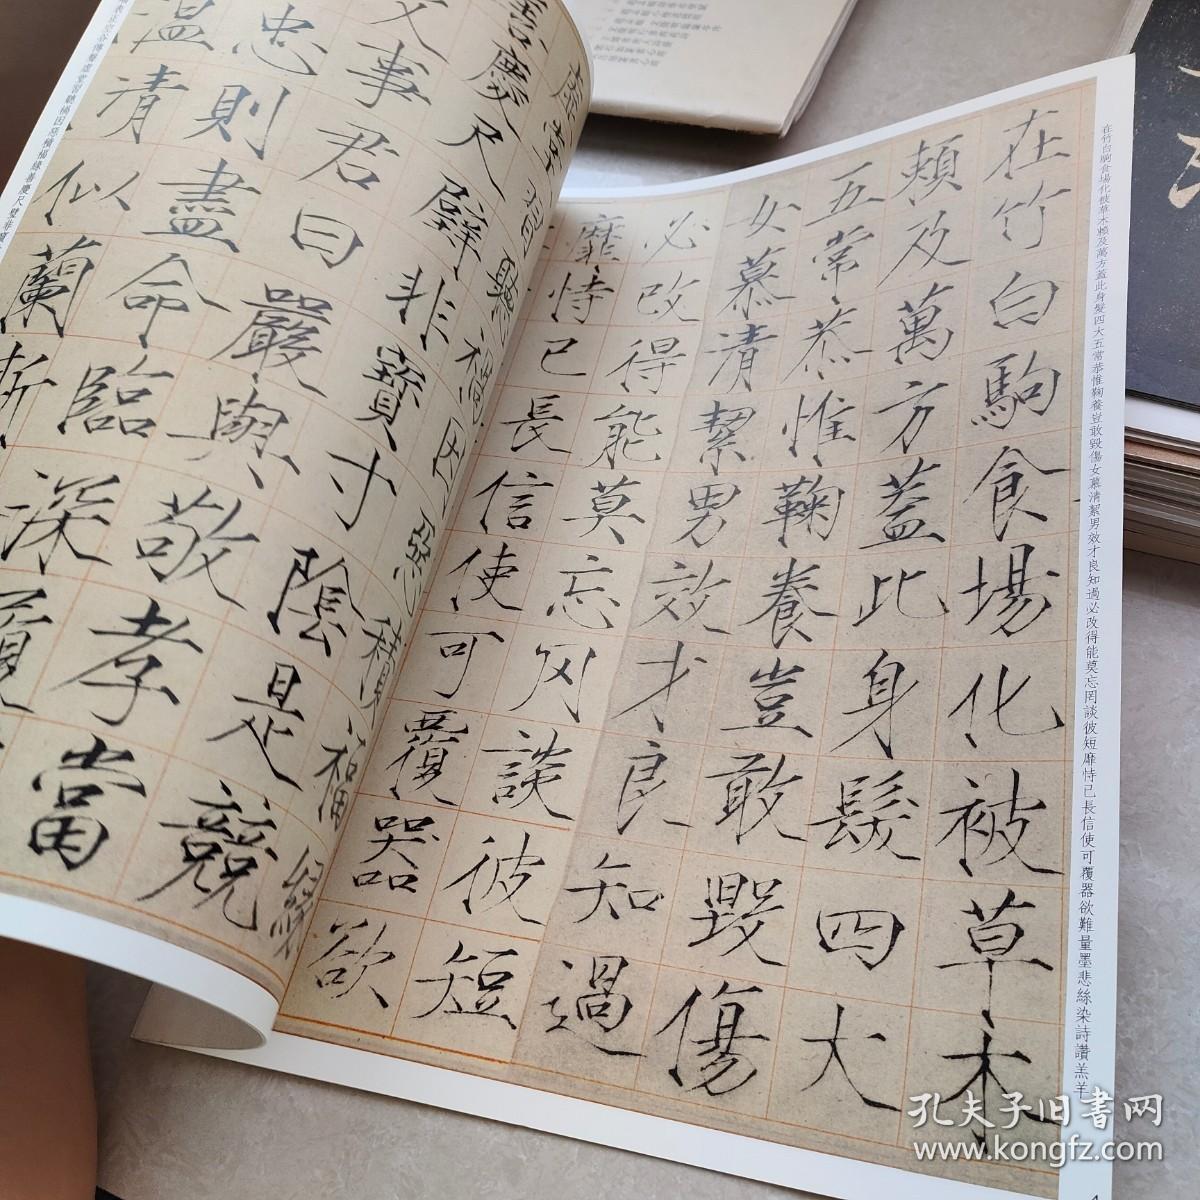 在竹白駒食場化被草木
賴及萬方蓋此身髮四大
五常恭惟鞠養豈敢毀傷
女慕清絜男效才良知過
必改得能莫忘罔談彼短
靡恃己長信使可覆器欲
在竹白駒食場化被草木賴及萬方蓋此身髮四大五常恭惟鞠養豈敢毀傷女慕清絜男效才良知過必改得能莫忘罔談彼短靡恃己長信使可覆器欲難量墨悲絲染詩讚羔羊
虛堂習聽禍因惡積福緣
善慶尺璧非寶寸陰是競
父事君曰嚴與敬孝當
忠則盡命臨深履
溫凊似蘭斯
表正空谷傳聲虛堂習聽禍因惡積福緣善慶尺璧非寶
孔夫子旧书网
www.kongfz.com